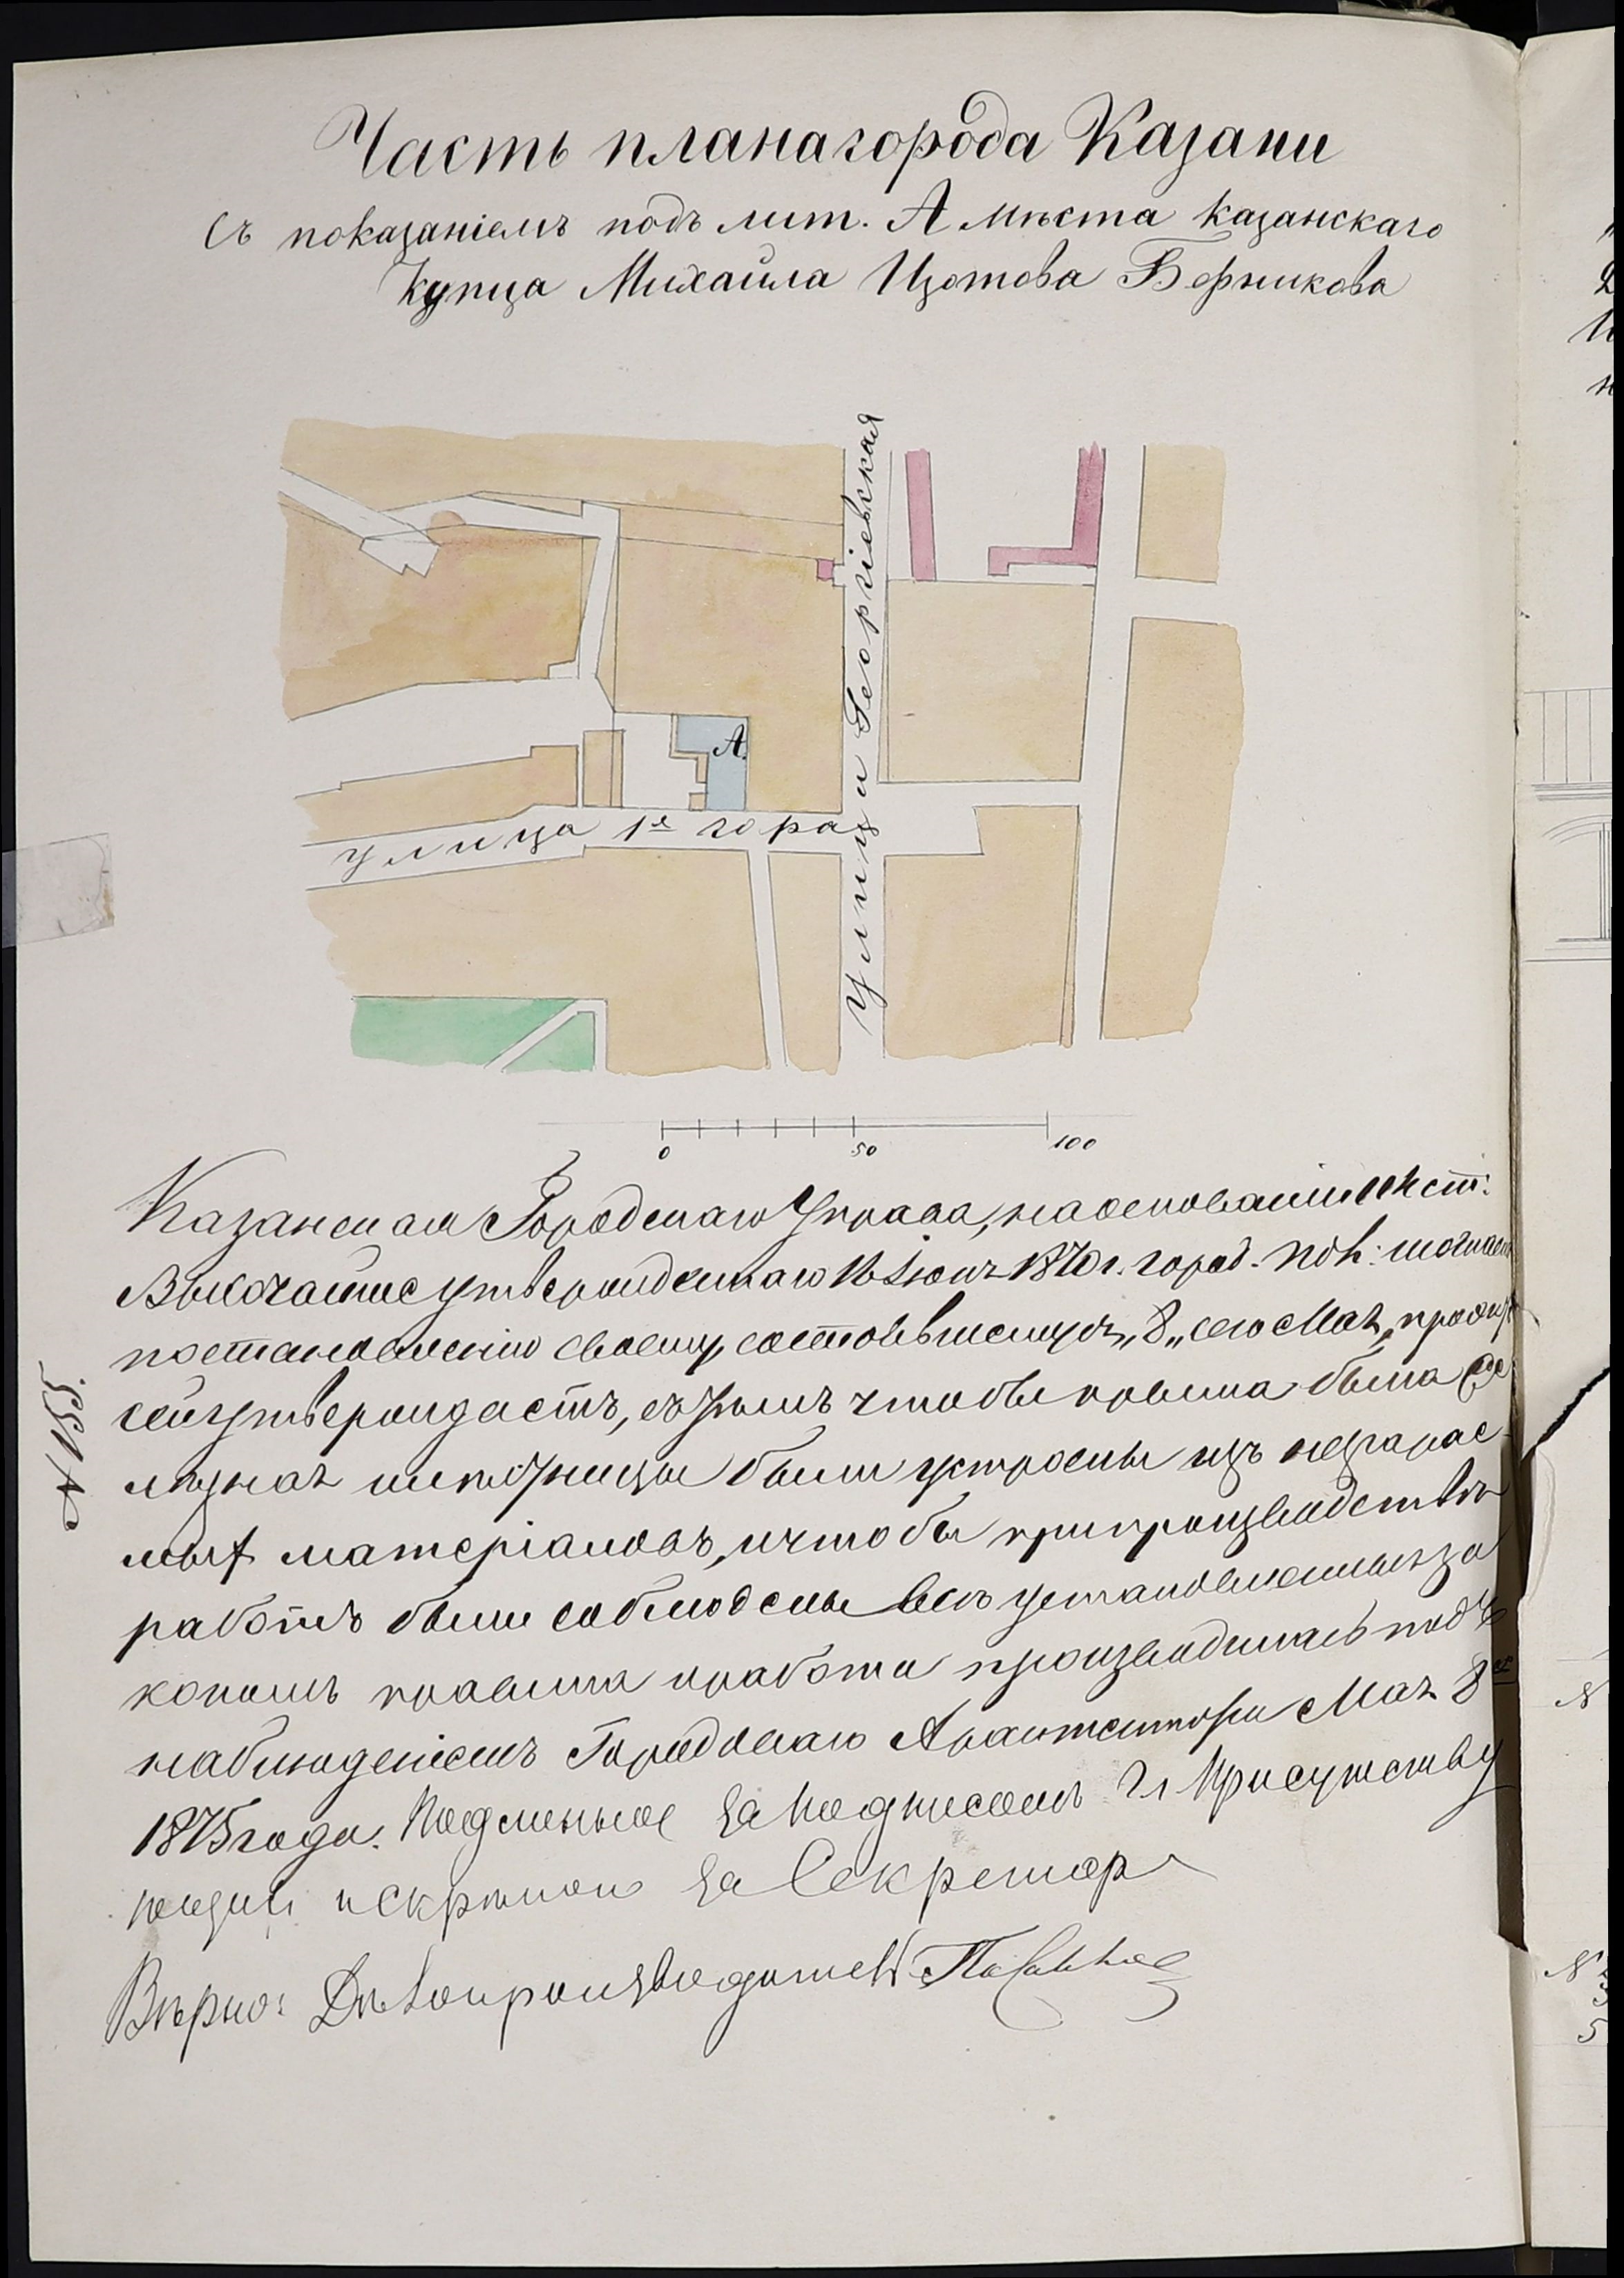 Часть плана города Казани
Съ показаніемъ подъ лит. А мѣста казанскаго
купца Михаила Изотова Берникова
Улица Георгіевская
А.
улица 1я гора
0 50 100
Казанская Городская Управа, на основаніи 114 ст.
Высочайше утвержденнаго 16 Іюня 1870 г. город. пол: согласно
постановленію своему, состоявшемуся „8„ сего Мая, проэктъ
сей утверждаетъ, съ тѣмъ чтобы кровля была
лѣзная и лѣстницы были устроены изъ несгарае-
мыхъ матеріаловъ, и чтобы при производствѣ
работъ были соблюдены всѣ установленныя за
кономъ правила и работа производилась подъ
наблюденіемъ Городоваго Архитектора Мая 8
1875 года. Подлинное за подписомъ Гг Присутству
ющих и скрѣпою За Секретаря
Вѣрно: Дѣлопроизводитель
№ 155.